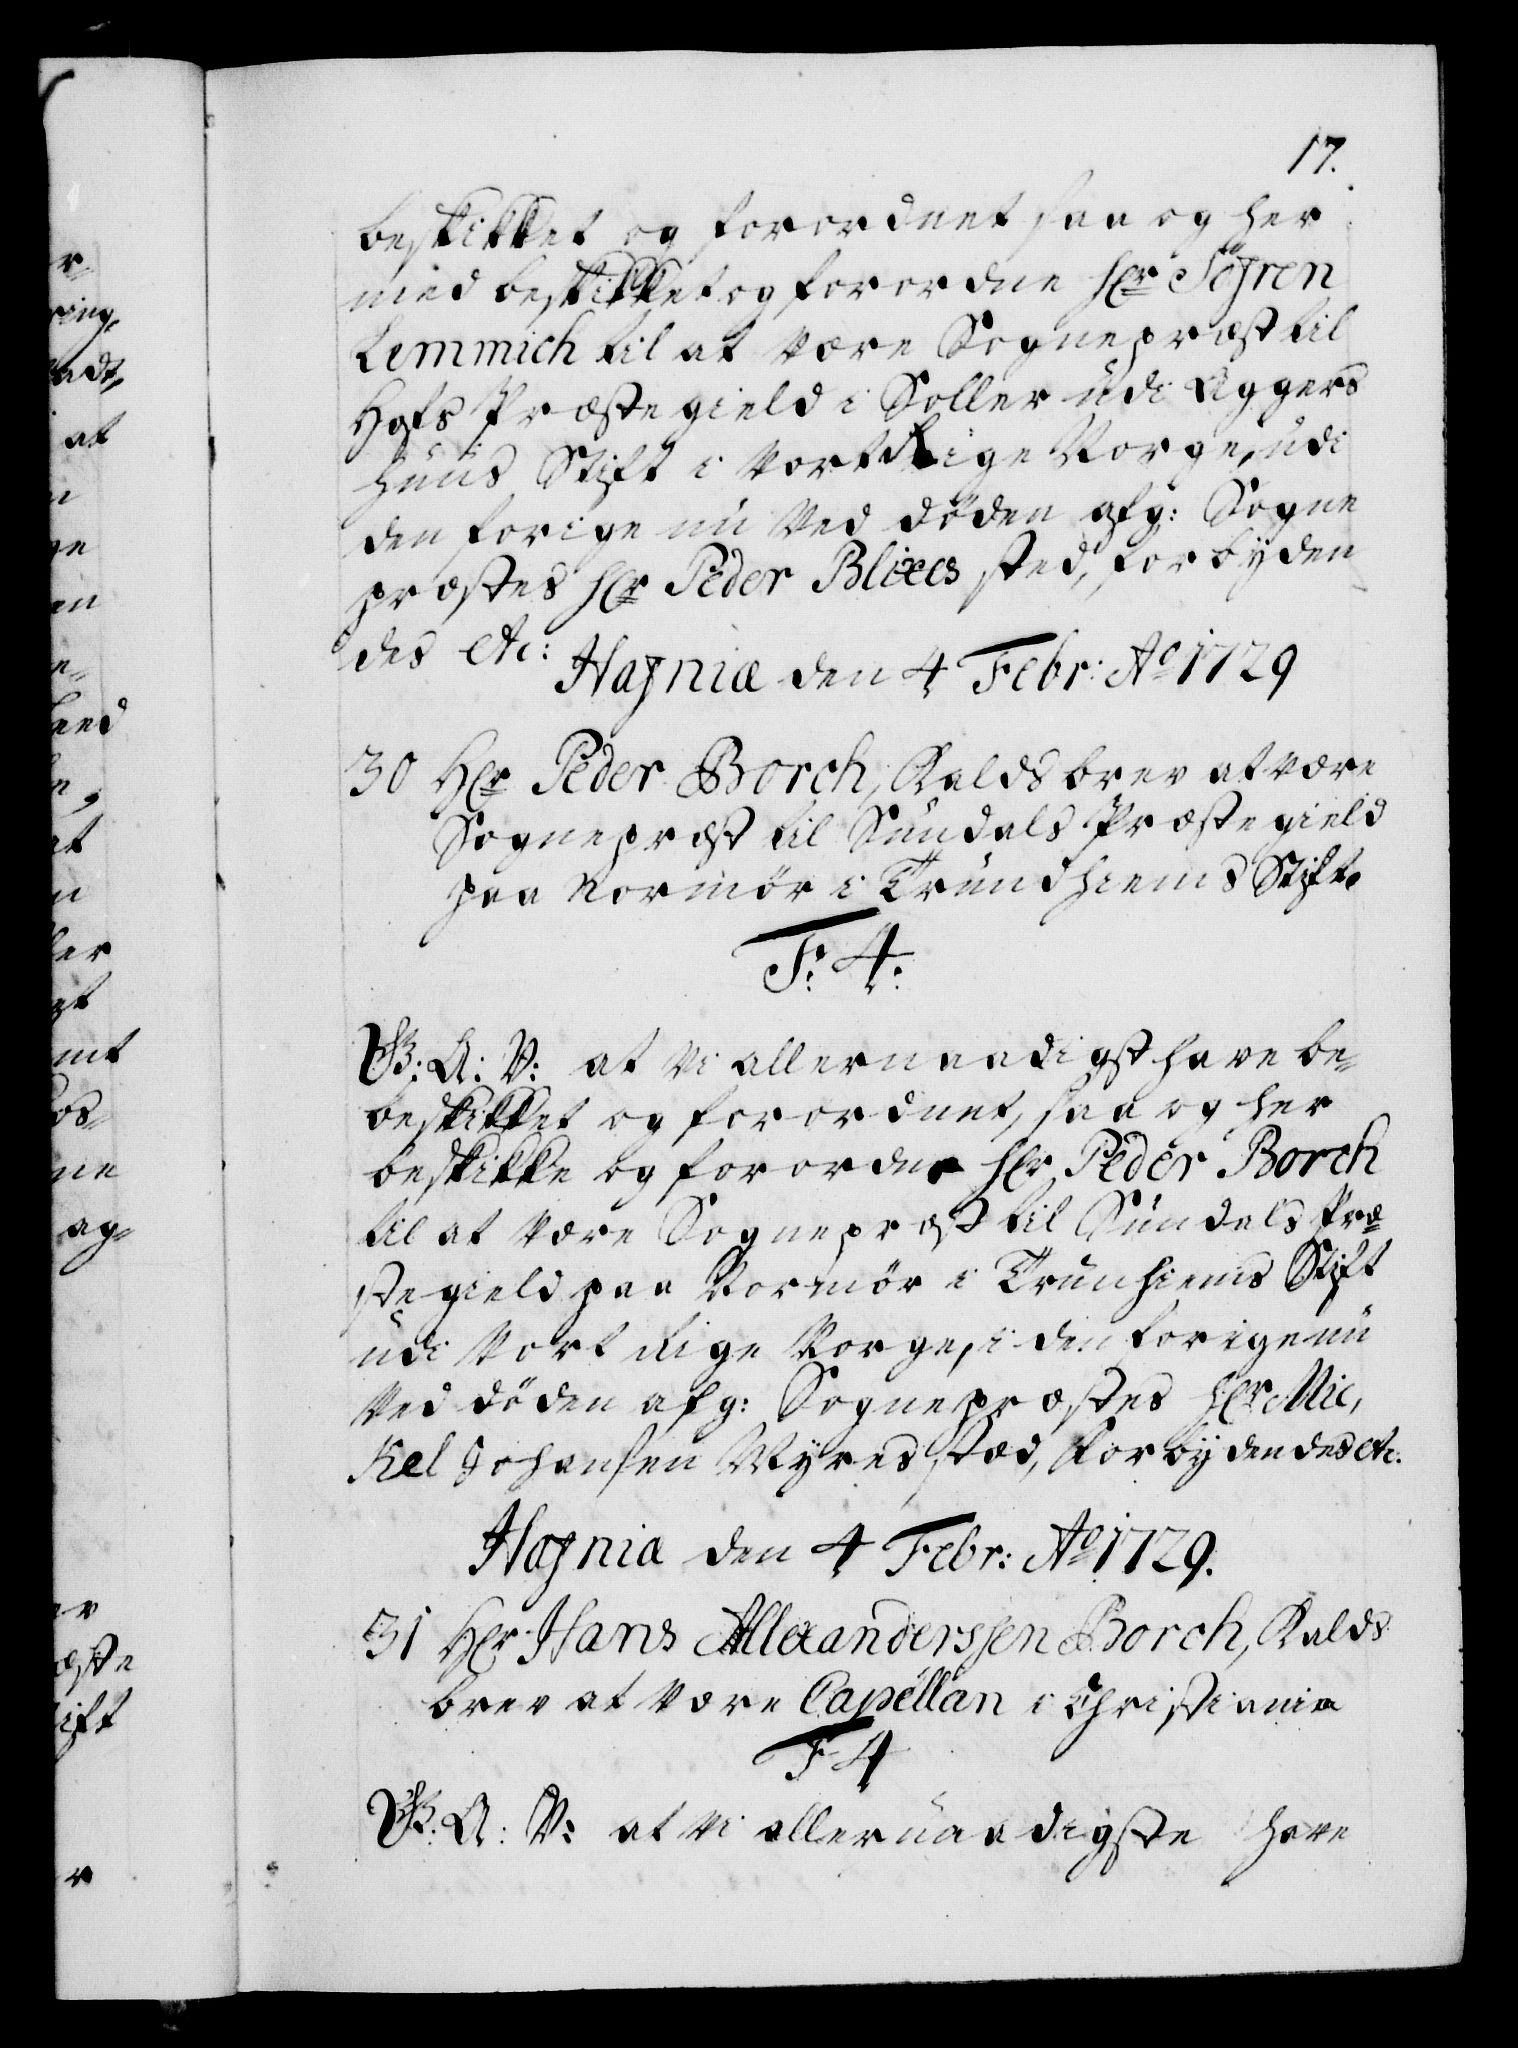 17.
beskikket og forordnet saa og her
med beskikket og forordne Hr Söfren
Lemmich til at være Sognepræst til
Hofs Præstegield i Soller udi Aggers
huus Stift i vort Rige Norge, udi
den forige nu ved döden afg: Sogne
præstes Hr Peder Blixes sted, forbyden
des etc:
Hafniæ den 4 Febr: Ao 1729
30 Hr Peder Borch, Kaldsbrev at være
Sognepræst til Sundals Præstegield
paa Normör i Trundhiems Stift.
F: 4:
G: A: V: at Vi allernaadigst have be-
beskikket og forordnet, saa og her
beskikke og forordne Hr Peder Borch
til at være Sognepræst til Sundals Præ-
stegield paa Normör i Trunhiems Stift
udi Vort Rige Norge, i den forige nu
Ved döden afg: Sognepræstes Hr Mic,
kel Johansen Myres stæd, forbydendes etc.
Hafnia den 4 Febr: Ao 1729.
31 Hr Hans Allexanderssen Borch, Kalds
brev at være Capellan i Christiania
F 4
G: A: V: at Vi allernaadigste have